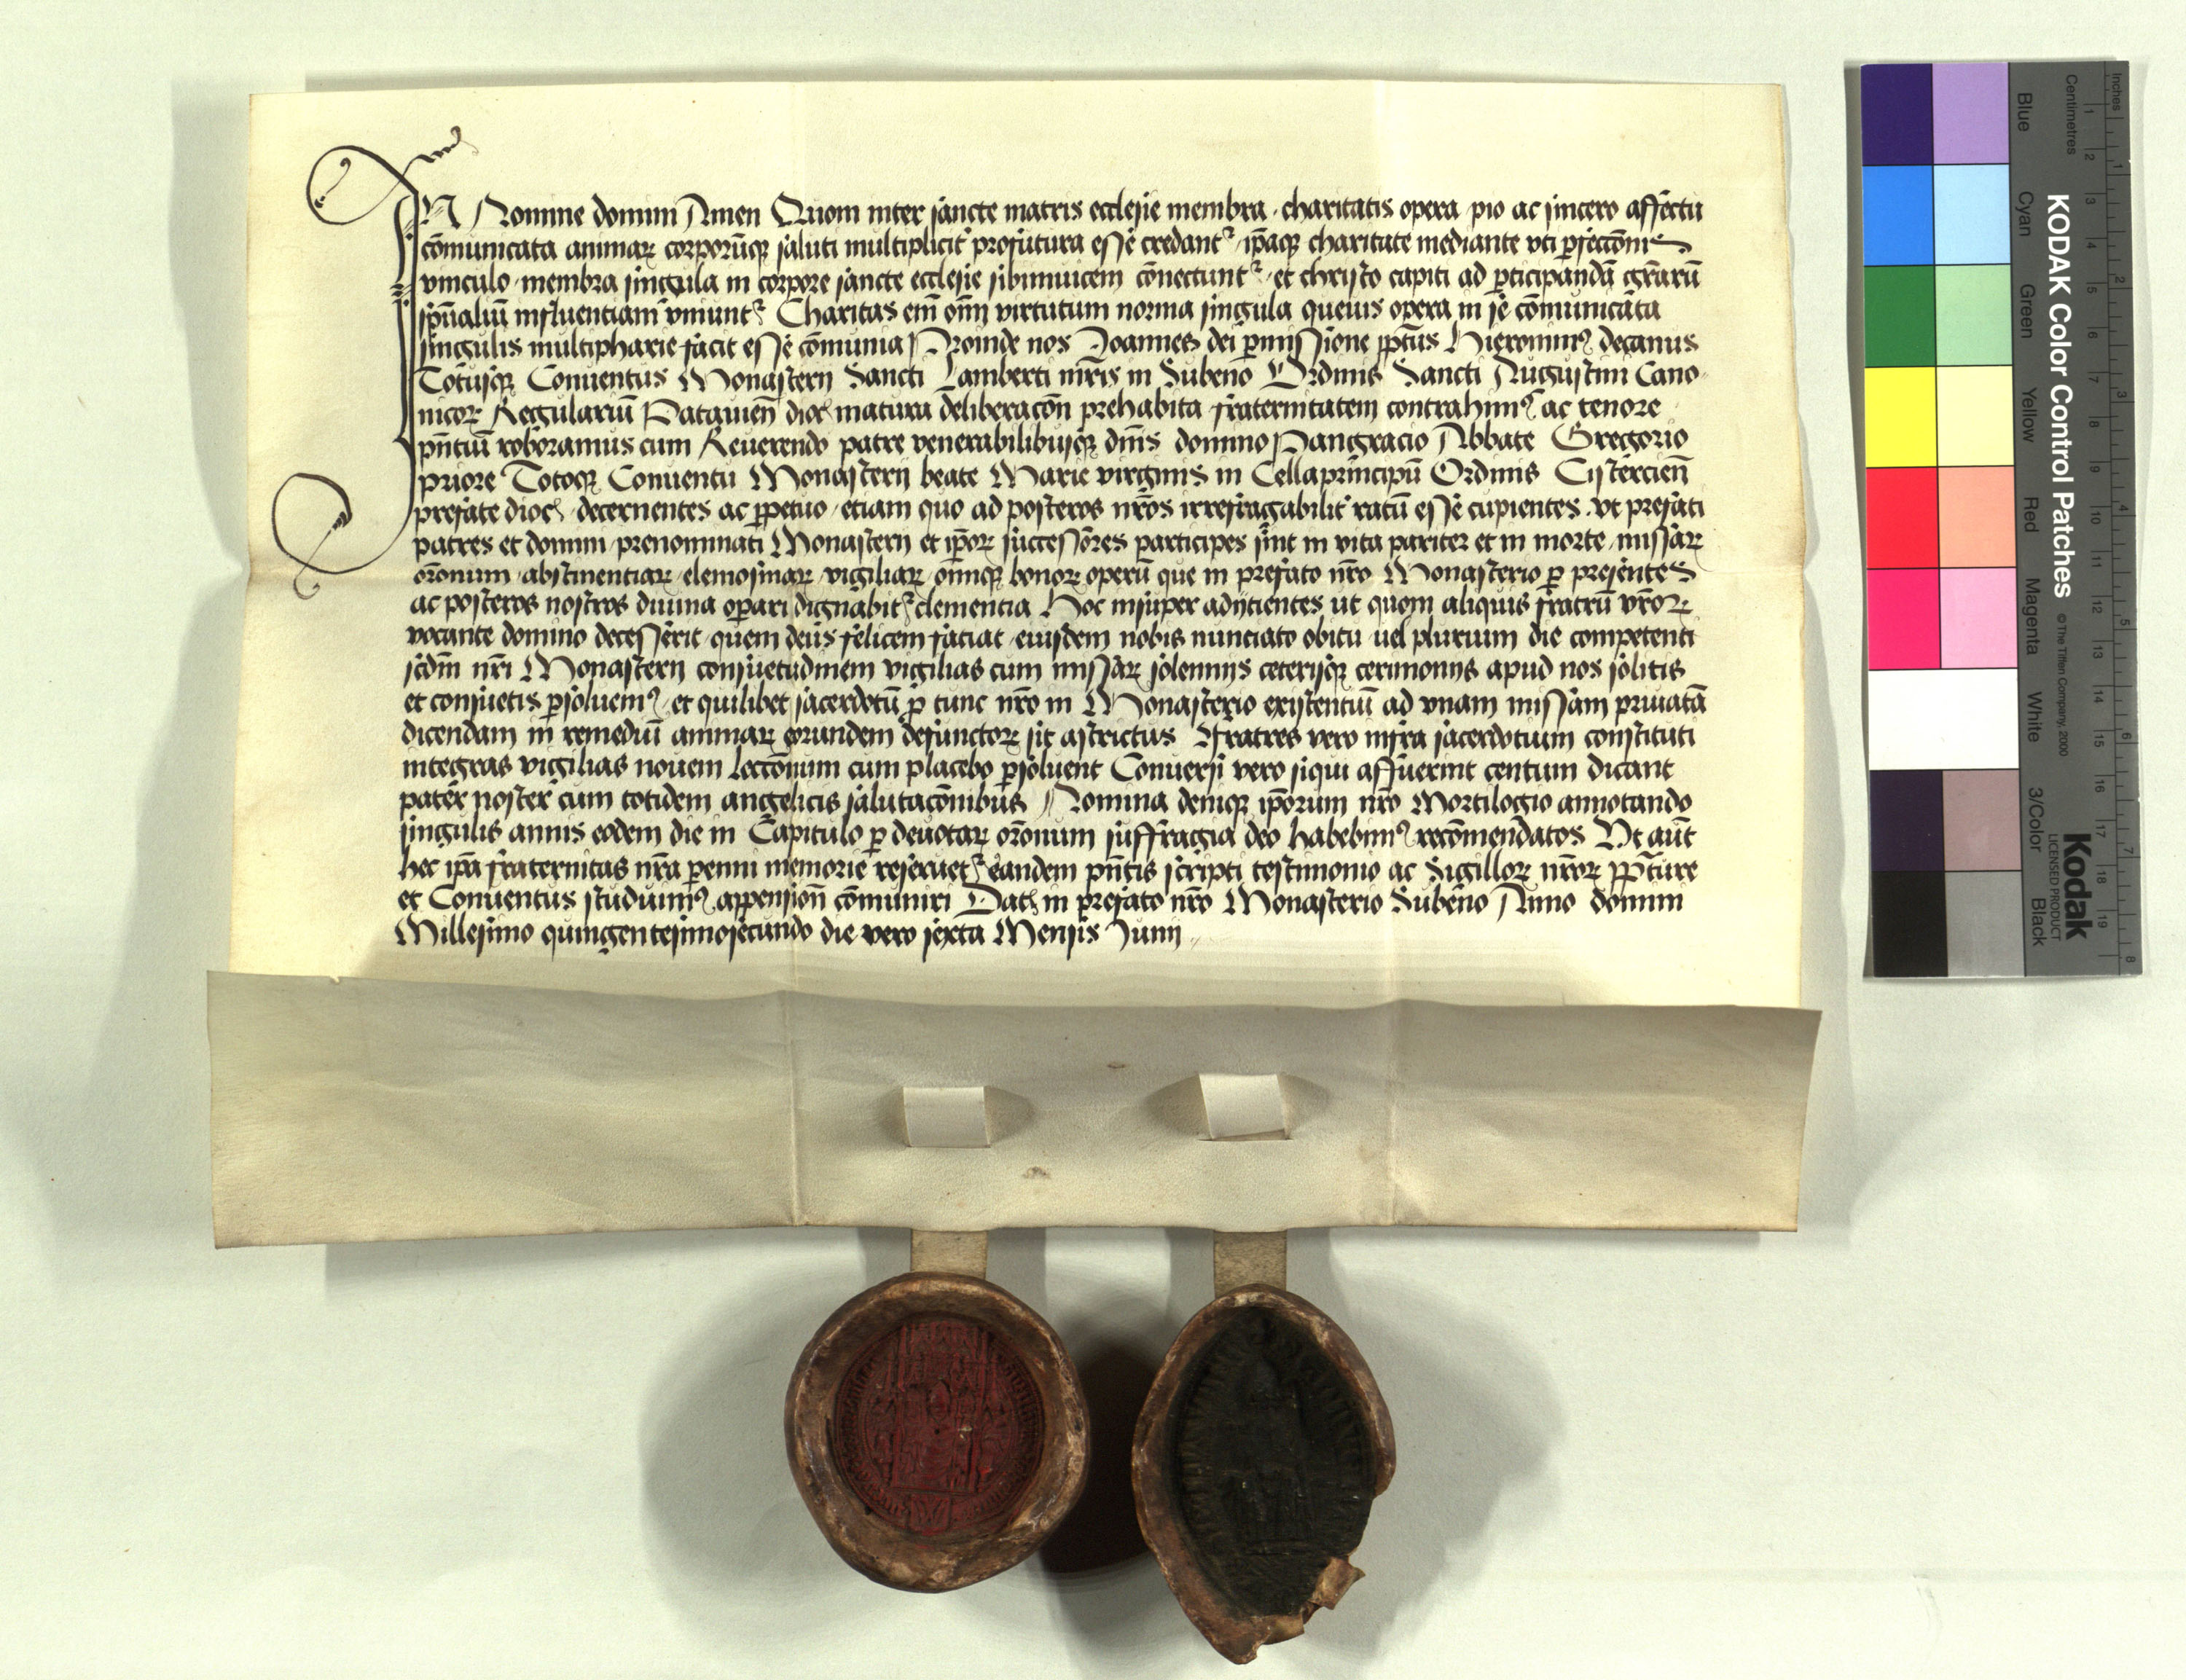 IN Nomine domini Amen Quom inter sancte matris ecclesie membra charitatis opera pio ac sincero affectu
cōmunicata animaꝝ corporūqꝫ saluti multiplicit᷑ profutura esse credant᷑ ip̄aqꝫ charitate mediante vti ꝑfecc̄onis
vinculo membra singula in corpore sancte ecclesie sibiinuicem cōnectunt᷑ et christo capiti ad ꝑticipandā gr̄arū
sp̄ualiū influentiam vniunt᷑ Charitas em̄ om̄ virtutum norma singula queuis opera in se cōmunicata
singulis multipharie facit esse cōmunia Proinde nos Joannes dei ꝑmissione pp̄tus Hieronimꝰ decanus
Totusqꝫ Conuentus Monasterij Sancti Lamberti m̄ris in Subeno Ordinis Sancti Augustini Cano
nicoꝝ Regulariū Patauien̄ dioc̄ matura deliberac̄on prehabita fraternitatem contrahimꝰ ac tenore
pn̄tiū roboramus cum Reuerendo patre venerabilibusqꝫ dn̄is domino Pangracio Abbate Gregorio
priore Totoqꝫ Conuentu Monasterij beate Marie virginis in Cellaprincipū Ordinis Cistercien̄
prefate dioc̄ decernentes ac ꝑpetuo etiam quo ad posteros nr̄os irrefragabilit᷑ ratū esse cupientes vt prefati
patres et domini prenominati Monasterij et ip̄oꝝ successores participes sint in vita pariter et in morte missaꝝ
or̄onum abstinentiaꝝ elemosinaꝝ vigiliaꝝ om̄iqꝫ bonoꝝ operū que in prefato nr̄o Monasterio ꝑ presentes
ac posteros nostros diuina oꝑari dignabit᷑ clementia Hoc insuper adijcientes ut quom aliquis fratrū vr̄oꝝ
vocante domino decesserit quem deus felicem faciat eiusdem nobis nunciato obitu uel plurium die competenti
scd̄m nr̄i Monasterij consuetudinem vigilias cum missaꝝ solennijs ceterisqꝫ cerimonijs apud nos solitis
et consuetis ꝑsoluemꝰ et quilibet sacerdotū ꝓ tunc nr̄o in Monasterio existentiū ad vnam missam priuatā
dicendam in remediū animaꝝ eorundem defunctoꝝ sit astrictus Fratres vero infra sacerdotium constituti
integras vigilias nouem lecc̄onum cum placebo ꝑsoluent Conuersi vero siqui affuerint centum dicant
pater noster cum totidem angelicis salutac̄onibus Nomina deniqꝫ ip̄orum nr̄o Mortilogio annotando
singulis annis eodem die in Capitulo ꝑ deuotaꝝ or̄onum suffragia deo habebimꝰ recōmendatos Vt aūt
hec ip̄a fraternitas nr̄a ꝑenni memorie reseruet᷑ eandem pn̄tis scripti testimonio ac Sigilloꝝ nr̄oꝝ pp̄ture
et Conuentus studuimꝰ appension̄ cōmuniri Dat̄ in prefato nr̄o Monasterio Subeno Anno domini
Millesimo quingentesimosecundo die vero sexta Mensis Junij
KODAK Color Control Patches
© The Tiffen Company, 2000
Kodak
LICENSED PRODUCT
Inches
Centimetres
Blue
Cyan
Green
Yellow
Red
Magenta
White
3/Color
Black
1 2 3 4 5 6 7 8 9 10 11 12 13 14 15 16 17 18 19
1 2 3 4 5 6 7 8